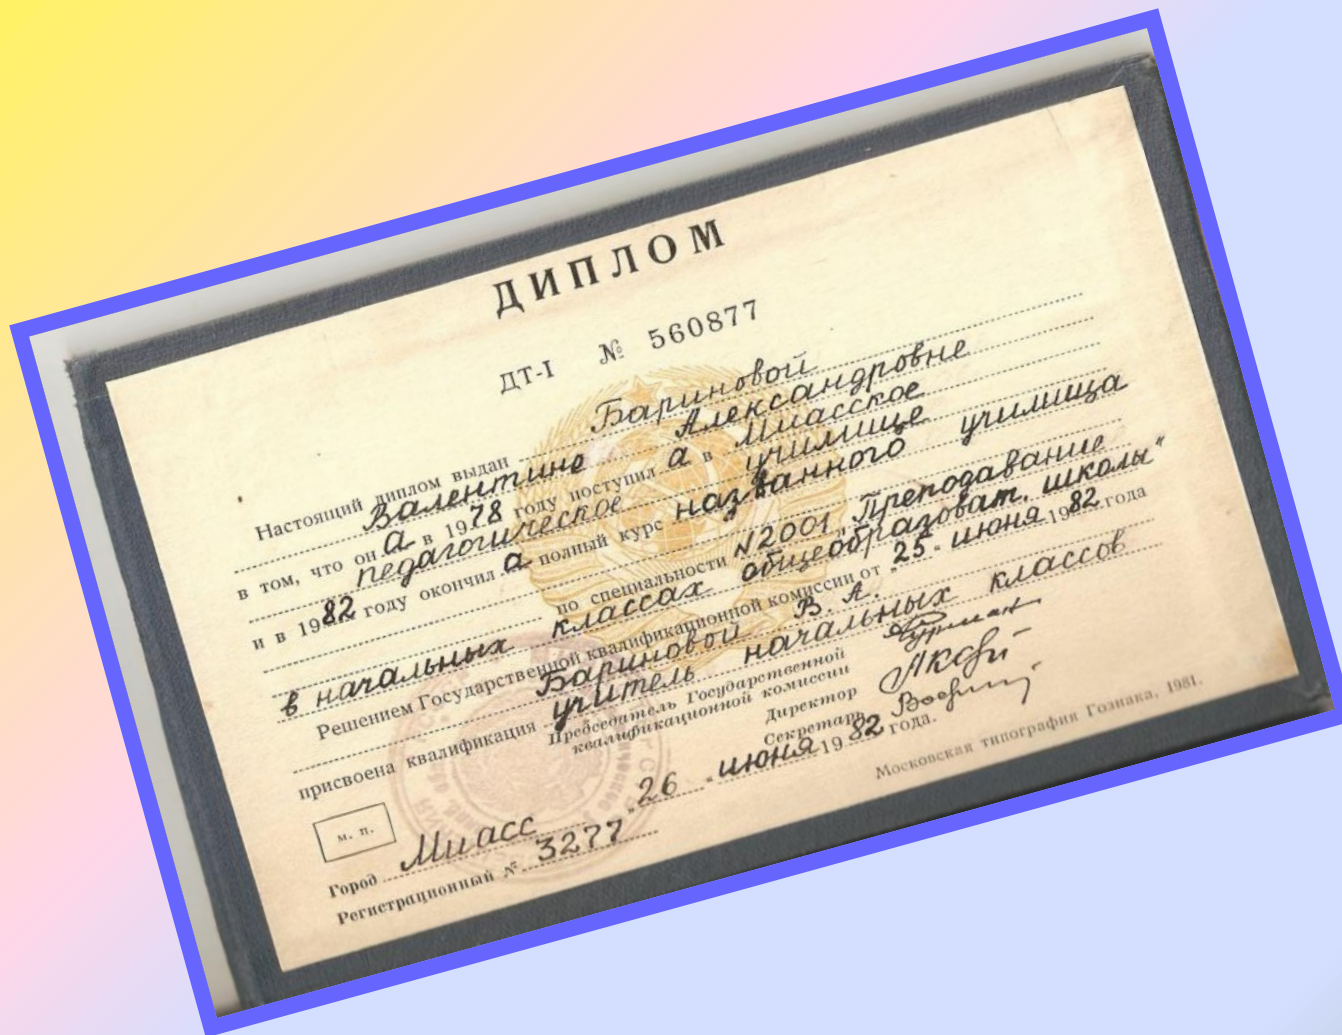 ДИПЛОМ
ДТ-I № 560877
Настоящий диплом выдан Бариновой
Валентине Александровне
в том, что он а в 1978 году поступил а в Миасское
педагогическое училище
и в 1982 году окончил а полный курс названного училища
по специальности №2001 „Преподавание
в начальных классах общеобразоват. школы“
Решением Государственной квалификационной комиссии от „25“ июня 1982 года
Бариновой В. А.
присвоена квалификация учитель начальных классов
Председатель Государственной
квалификационной комиссии
Директор
Секретарь
м. п.
Город Миасс „26“ июня 1982 года.
Регистрационный № 3277
Московская типография Гознака. 1981.